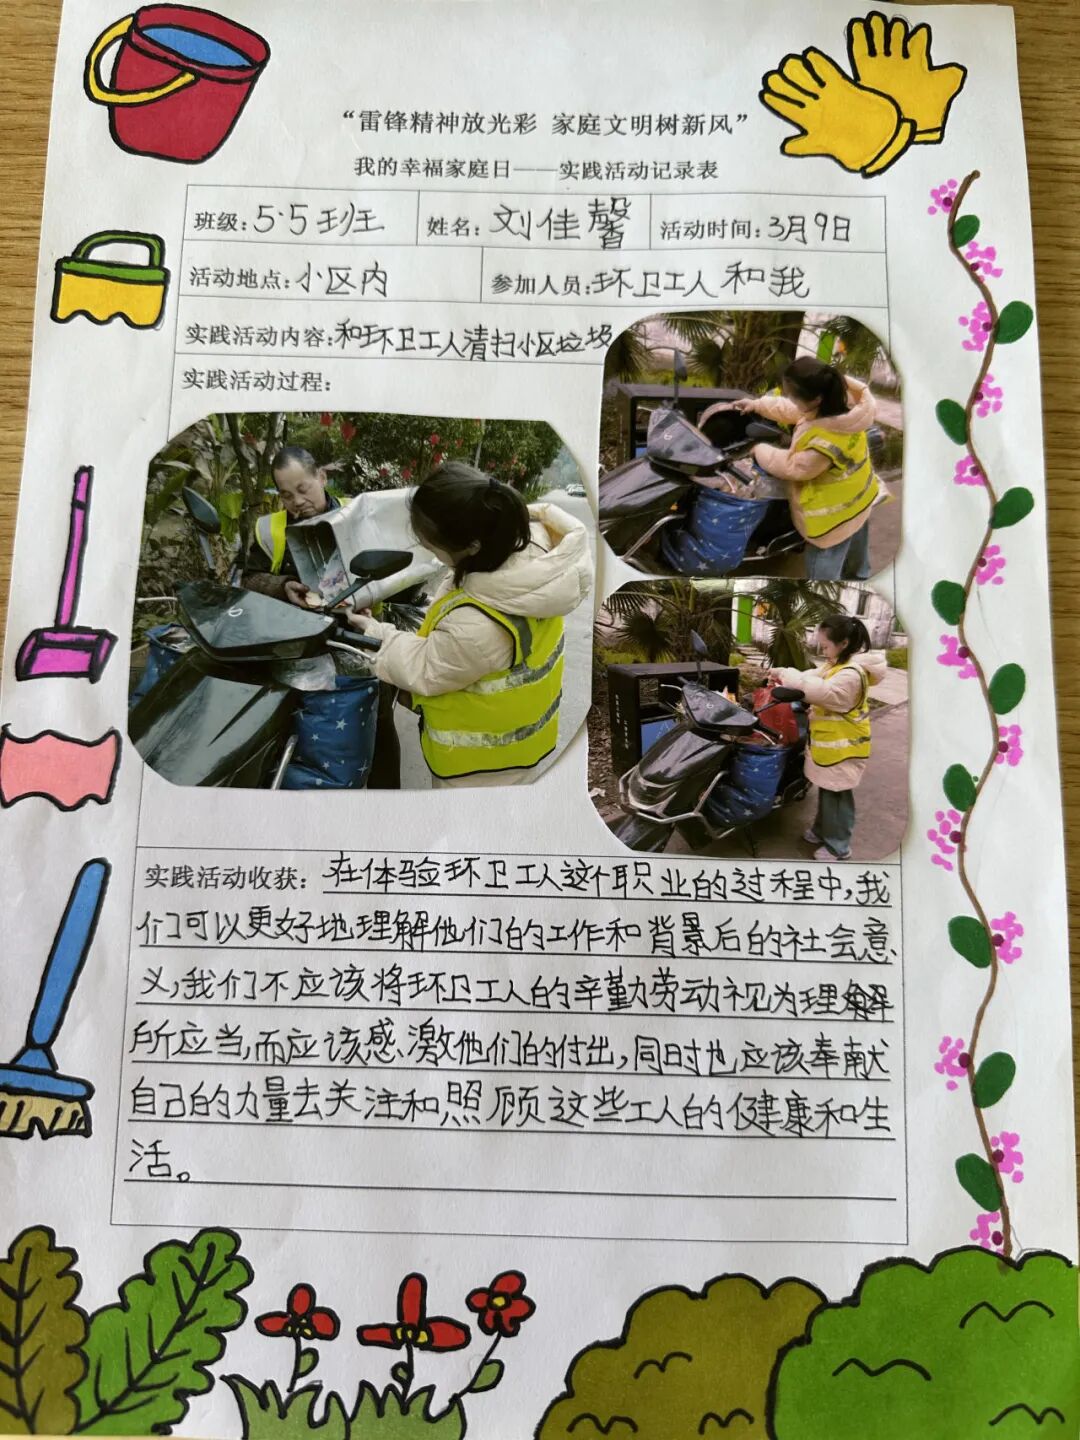 “雷锋精神放光彩 家庭文明树新风”
我的幸福家庭日——实践活动记录表
班级:5·5班 姓名:刘佳馨 活动时间:3月9日
活动地点:小区内 参加人员:环卫工人和我
实践活动内容:和环卫工人清扫小区垃圾
实践活动过程:
实践活动收获:在体验环卫工人这个职业的过程中,我
们可以更好地理解他们的工作和背景后的社会意
义,我们不应该将环卫工人的辛勤劳动视为理解
所应当,而应该感激他们的付出,同时也应该奉献
自己的力量去关注和照顾这些工人的健康和生
活。